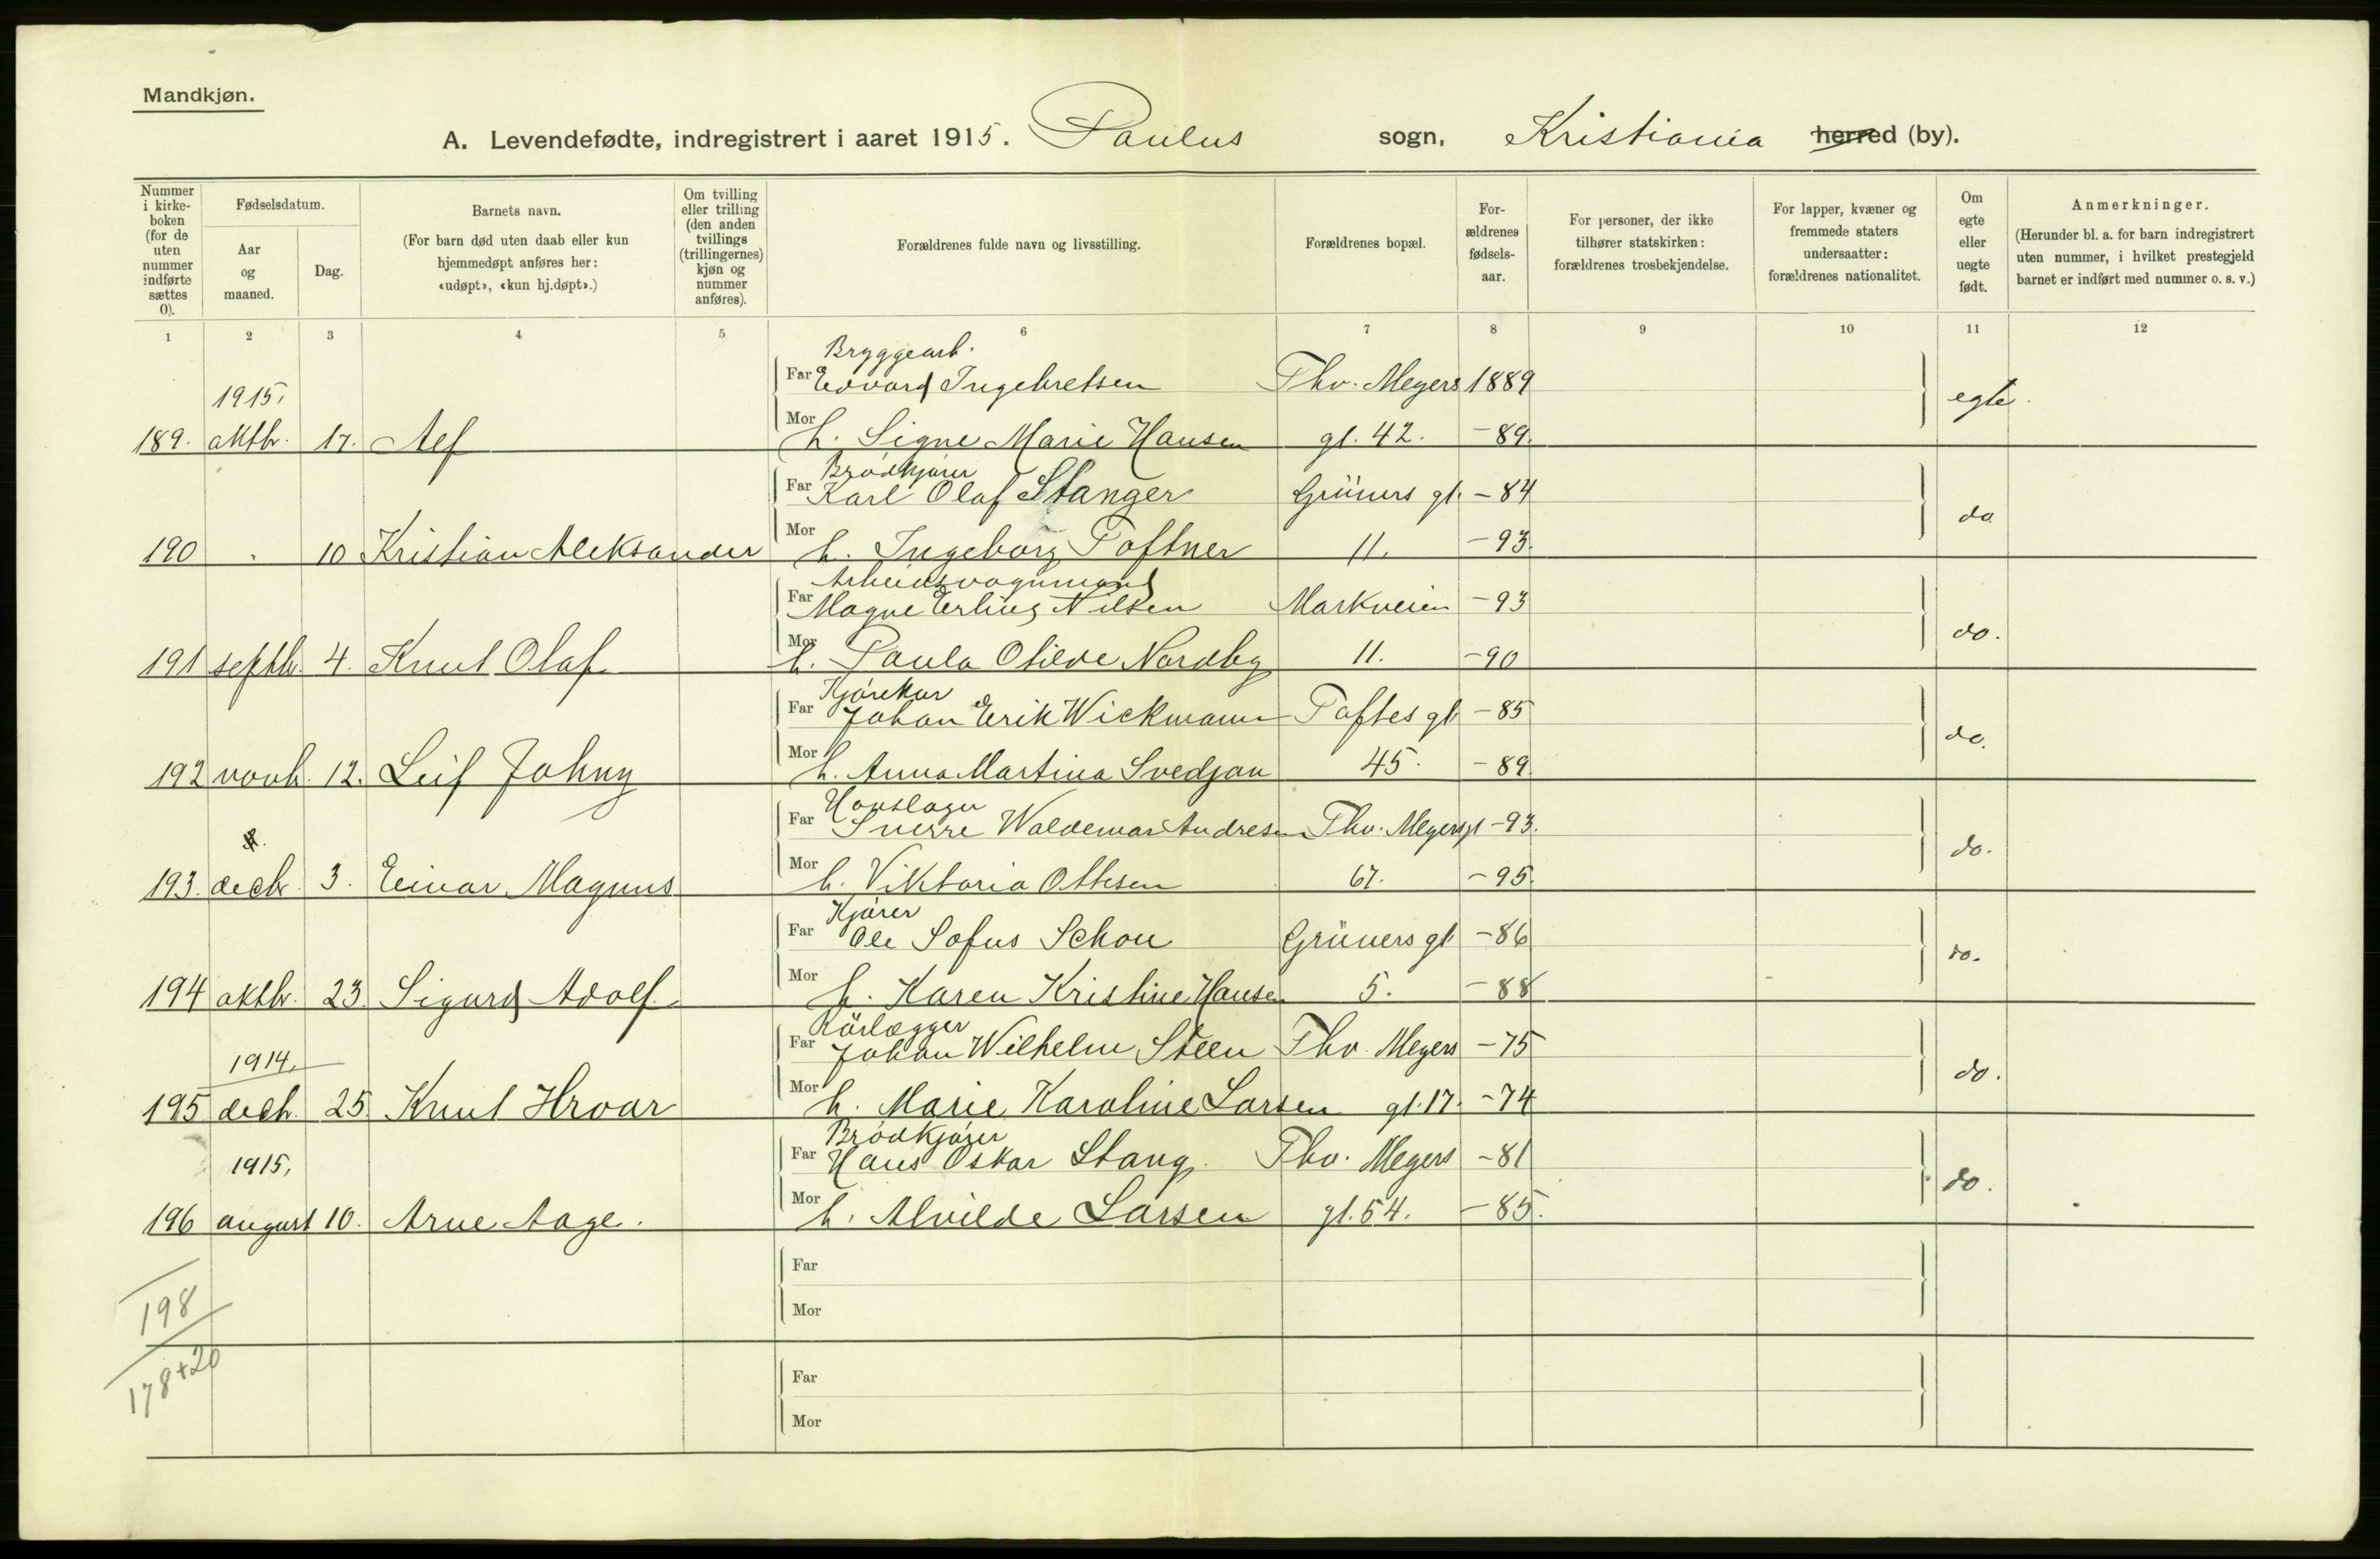 Mandkjøn.
A. Levendefødte, indregistrert i aaret 1915. Paulus sogn, Kristiania herred (by).
Nummer i kirke-boken (for de uten nummer indførte sættes 0).
Fødselsdatum.
Aar og maaned.
Dag.
Barnets navn.
(For barn død uten daab eller kun hjemmedøpt anføres her: «udøpt», «kun hj.døpt».)
Om tvilling eller trilling (den anden tvillings (trillingernes) kjøn og nummer anføres).
Forældrenes fulde navn og livsstilling.
Forældrenes bopæl.
For-ældrenes fødsels-aar.
For personer, der ikke tilhører statskirken: forældrenes trosbekjendelse.
For lapper, kvæner og fremmede staters undersaatter: forældrenes nationalitet.
Om egte eller uegte født.
Anmerkninger.
(Herunder bl. a. for barn indregistrert uten nummer, i hvilket prestegjeld barnet er indført med nummer o. s. v.)
1 2 3 4 5 6 7 8 9 10 11 12
Bryggearb.
Far Edvard Ingebretsen Thv. Meyers 1889
1915, egte.
189. oktbr. 17. Alf Mor h. Signe Marie Hansen gt. 42. -89.
Brødkjører
Far Karl Olaf Stanger Grüners gt. -84
do
190 " 10 Kristian Aleksander Mor h. Ingeborg Toftner 11. -93.
Arbeidsvognmand
Far Magne Erling Nilsen Markveien -93
do.
191 septbr. 4. Knut Olaf Mor h. Paula Otilde Nordby 11. -90
Kjørekar
Far Johan Erik Wickmann Toftes gt -85
do.
192 novb. 12. Leif Johny Mor h. Anna Martina Svedjan 45. -89.
Far Sverre Waldemar Andresen Thv. Meyers gt -93.
do.
193. decbr. 3. Einar Magnus Mor h. Viktoria Ottesen 67. -95.
Kjører
Far Ole Sofus Schou Grüners gt -86
do.
194 oktbr. 23. Sigurd Adolf. Mor h. Karen Kristine Hansen 5. -88
Rørlægger
Far Johan Wilhelm Steen Thv. Meyers -75
1914, do.
195 decb. 25. Knut Hroar Mor h. Marie Karoline Larsen gt. 17. -74
Brødkjører
Far Hans Oskar Stang. Thv. Meyers -81
1915, do.
196 august 10. Arne Aage. Mor h. Alvilde Larsen gt. 54. -85.
Far
198
Mor
178+20
Far
Mor